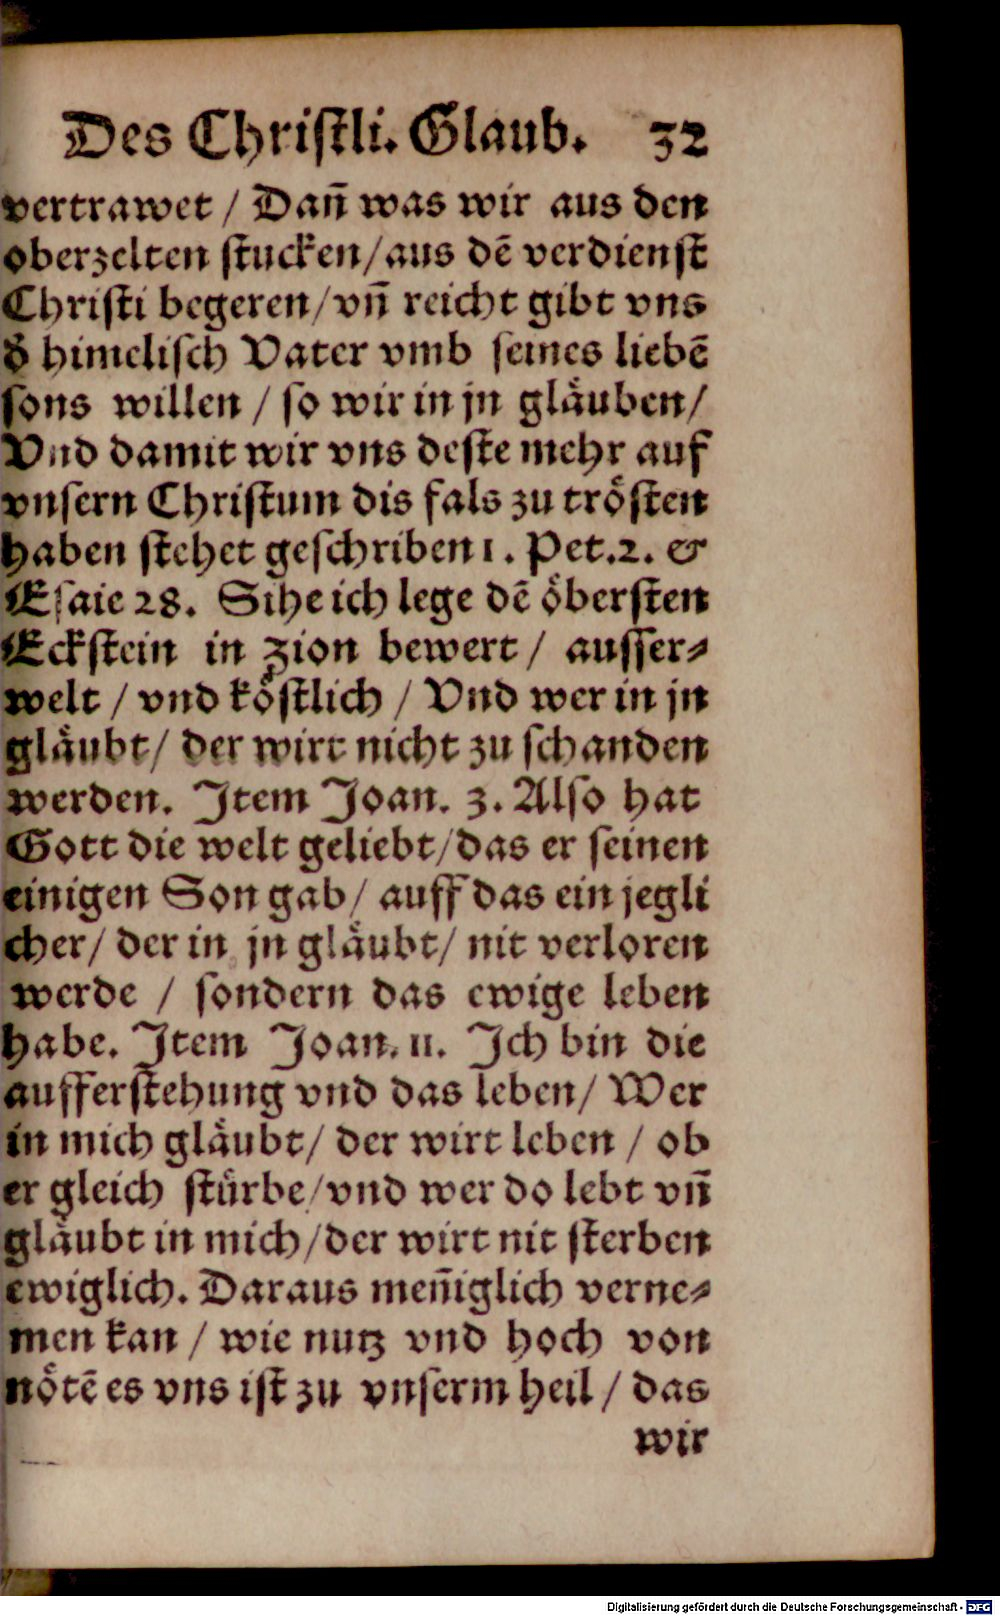 Des Christli. Glaub. 32
vertrawet / Dañ was wir aus den
oberzelten stucken/aus dē verdienst
Christi begeren/vñ reicht gibt vns
d̓ himelisch Vater vmb seines liebē
sons willen / so wir in jn glaͤuben/
Vnd damit wir vns deste mehr auf
vnsern Christum dis fals zu troͤsten
haben stehet geschriben 1. Pet. 2. &
Esaie 28. Sihe ich lege dē oͤbersten
Eckstein in Zion bewert / ausser⸗
welt / vnd koͤstlich / Vnd wer in jn
glaͤubt/ der wirt nicht zu schanden
werden. Item Joan. 3. Also hat
Gott die welt geliebt/das er seinen
einigen Son gab/ auff das ein jegli
cher/ der in jn glaͤubt/ nit verloren
werde / sondern das ewige leben
habe. Item Joan. 11. Ich bin die
aufferstehung vnd das leben/ Wer
in mich glaͤubt/ der wirt leben / ob
er gleich stuͤrbe/vnd wer do lebt vñ
glaͤubt in mich/der wirt nit sterben
ewiglich. Daraus meñiglich verne⸗
men kan / wie nutz vnd hoch von
noͤtē es vns ist zu vnserm heil / das
wir
Digitalisierung gefördert durch die Deutsche Forschungsgemeinschaft - DFG